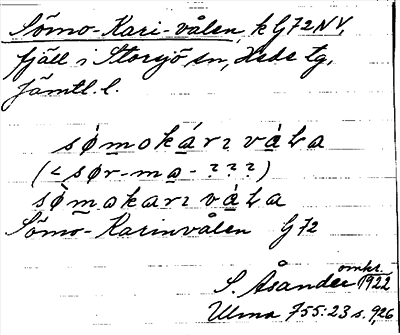 Sömo-Kari-vålen, k G72NV,
fjäll i Storsjö sn, Hede tg,
Jämtl. l.
sǿmokárı vàLa
(< sør-ma - ???)
sø̀makarı vàLa
Sömo-Karinvålen G72
S. Åsander omkr. 1922
Ulma 755:23 s. 926